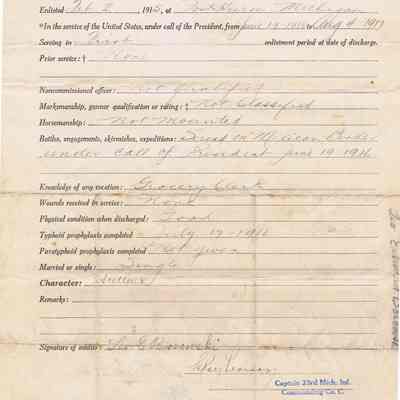 Enlisted Feb 2 1915, at Michigan
*In the service of the United States, under call of the President, from June 19 1916 to Aug 4 1917
Serving in First enlistment period at date of discharge.
Prior service: † None
Noncommissioned officer: Not Qualified
Marksmanship, gunner qualification or rating: † Not Classified
Horsemanship: Not Mounted
Battles, engagements, skirmishes, expeditions: Served on Mexican Border
under Call of President June 19 1916
Knowledge of any vocation: Grocery Clerk
Wounds received in service: None
Physical condition when discharged: Good
Typhoid prophylaxis completed July 19-1916
Paratyphoid prophylaxis completed Not given
Married or single: Single
Character: Excellent
Remarks:
Signature of soldier: Leo E
Captain 23rd Mich. Inf.
Commanding Co. C.